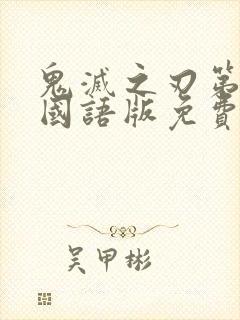 鬼滅之刃第
國語版免費
吳甲彬